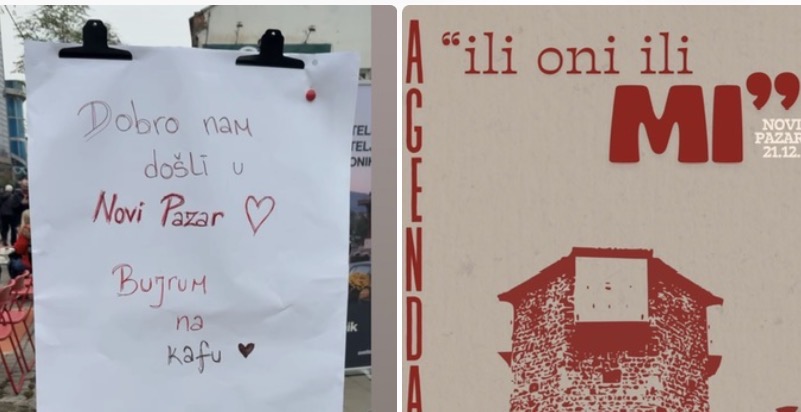 Dobro nam
došli u
Novi Pazar
Bujrum
na
kafu
AGENDA
“ili oni ili
MI”
NOVI
PAZAR
21.12.